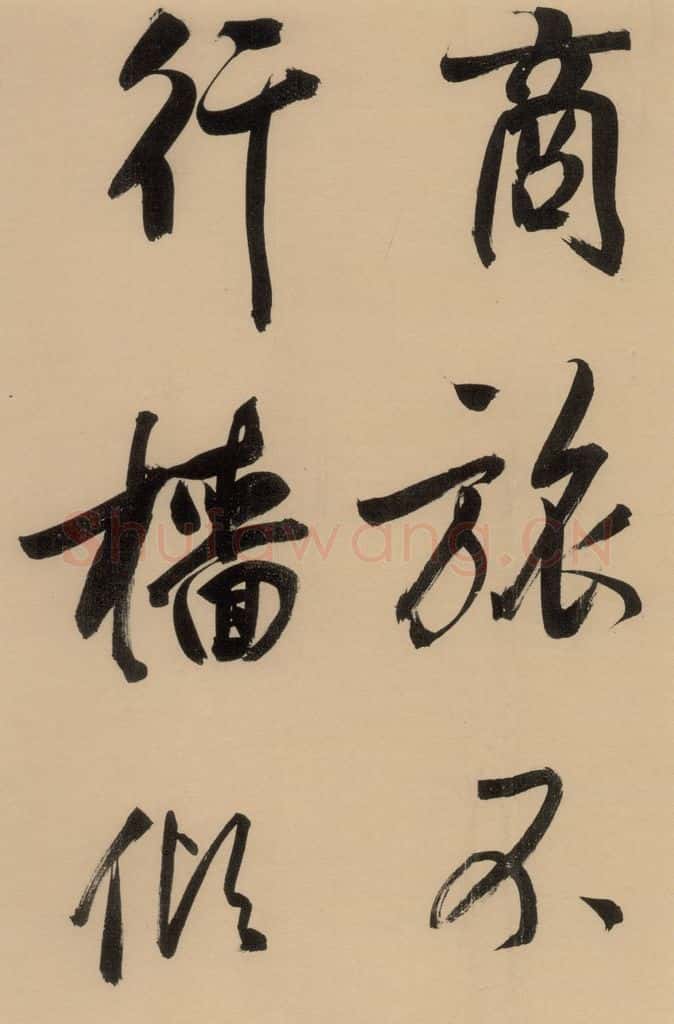 商旅不
行檣傾
Shufawang.CN